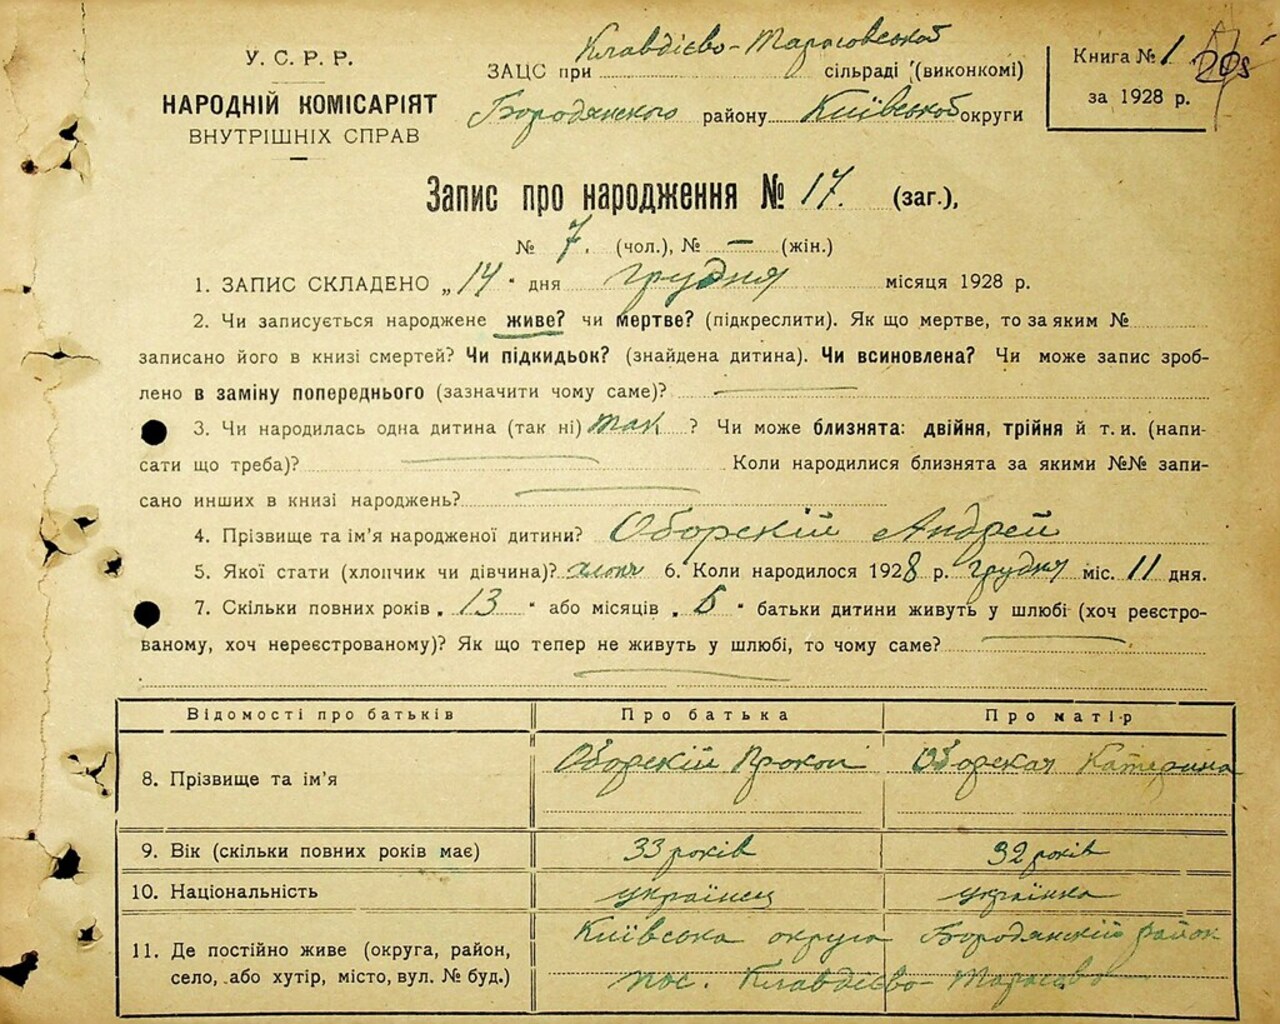 Клавдієво-Тарасовської
У. С. Р. Р.
НАРОДНІЙ КОМІСАРІЯТ
ВНУТРІШНІХ СПРАВ
ЗАЦС при сільраді (виконкомі)
Бородянского району Київської округи
Книга № 1
за 1928 р.
Запис про народження № 17. (заг.),
№ 7. (чол.), № — (жін.)
1. ЗАПИС СКЛАДЕНО „14" дня грудня місяця 1928 р.
2. Чи записується народжене живе? чи мертве? (підкреслити). Як що мертве, то за яким №
записано його в книзі смертей? Чи підкидьок? (знайдена дитина). Чи всиновлена? Чи може запис зроб-
лено в заміну попереднього (зазначити чому саме)? —
3. Чи народилась одна дитина (так ні) так ? Чи може близнята: двійня, трійня й т. и. (напи-
сати що треба)? — Коли народилися близнята за якими №№ запи-
сано инших в книзі народжень? —
4. Прізвище та ім'я народженої дитини? Оборскій Андрей
5. Якої стати (хлопчик чи дівчина)? хлопч 6. Коли народилося 1928 р. грудня міс. 11 дня.
7. Скільки повних років „13" або місяців „5" батьки дитини живуть у шлюбі (хоч реєстро-
ваному, хоч нереєстрованому)? Як що тепер не живуть у шлюбі, то чому саме? —
—
Відомості про батьків Про батька Про матір
8. Прізвище та ім'я Оборскій Прокоп Оборская Катерина
9. Вік (скільки повних років має) 33 років 32 років
10. Національність українец українка
11. Де постійно живе (округа, район, Київська округа Бородянскій район
село, або хутір, місто, вул. № буд.) пос. Клавдієво-Тарасово